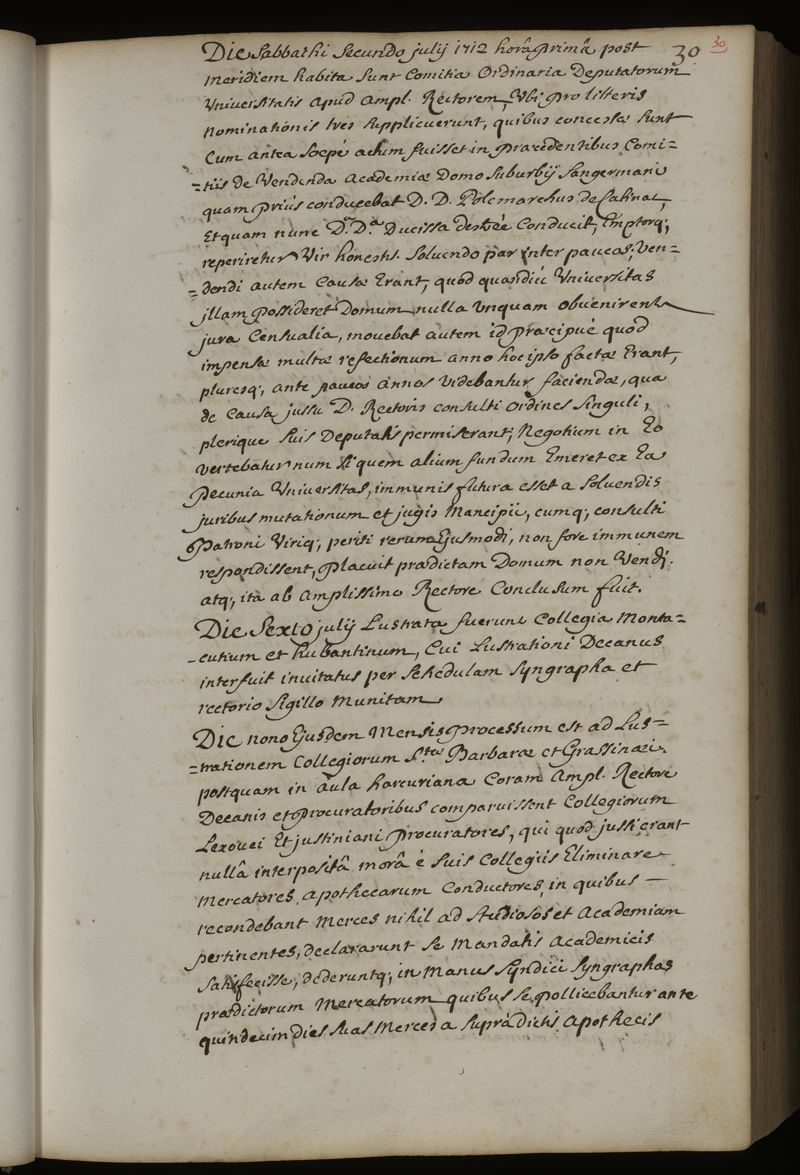 30 30
Die Sabbathi Secundo julij 1712 horâ primâ post
meridiem habita sunt Comitia Ordinaria Deputatorum
Universitatis apud Ampl. Rectorem, Ubi pro litteris
nominationis tres supplicuerunt, quibus concessæ sunt
Cum antea Sœpé actum fuisset in præcedentibus Comi=
=tiis de Vendenda Academiæ Domo Suburbij Sangermani
quam priùs conducebat D. D. Polemarchus de
Et quam nunc D.a D.a Ducissa destrée Conducit, Emptorq;
reperiretur Vir honestis. Solvendo par inter paucos; Ven=
=dendi autem Causæ Erant, quòd quandiù Universitas
jllam possideret Domum nulla Unquam obvenirent
jura Censualia, movebat autem id præcipuè quod
impensæ multæ refectionum anno hoc ipso factæ Erant,
pluresq; ante paucos annos Videbantur faciendæ, qua
de Causa jussu D. Rectoris consulti ordines Singuli,
plerique suis Deputatis permiserant; Negotium in Eo
vertebatur num Si quem alium fundum Emeret ex Ea
Pecunia Universitas, immunis futura esset a Solvendis
juribus mutationum et jugis Mancipii, cumq; consulti
Patroni Viriq; periti rerum Ejusmodi, non fore immunem
respondissent, placuit prædictam Domum non Vendi.
atq; ita ab Amplissimo Rectore Conclusum fuit.
Die Sexto julij Lustrata fuerunt Collegia Monta=
=cutium et hubantinum, Cui Lustrationi Decanus
interfuit invitatus per Schedulam Syngrapha et
rectorio Sigillo Munitam
Die nono Ejusdem Mensis processum est ad Lus=
=trationem Collegiorum S.tæ Barbaræ et Grassinæi
postquam in aula harcuriana Coram Ampl. Rectore
Decanis et procuratoribus comparuissent Collegiorum
Lexovei Et justiniani Procuratores, qui quod jussi erant
nullâ interpositâ morâ è suis Collegiis Eliminare
Mercatores, Apothecarum Conductores, in quibus
recondebant Merces nihil ad Studiosos et Academiam
pertinentes, declararunt se Mandatis Academicis
Satisfecisse, dederuntq; in Manus Syndici Syngraphas
prædictorum Mercatorum quibus se pollicebantur ante
quindecim dies suas Merces a supradictis Apothecis